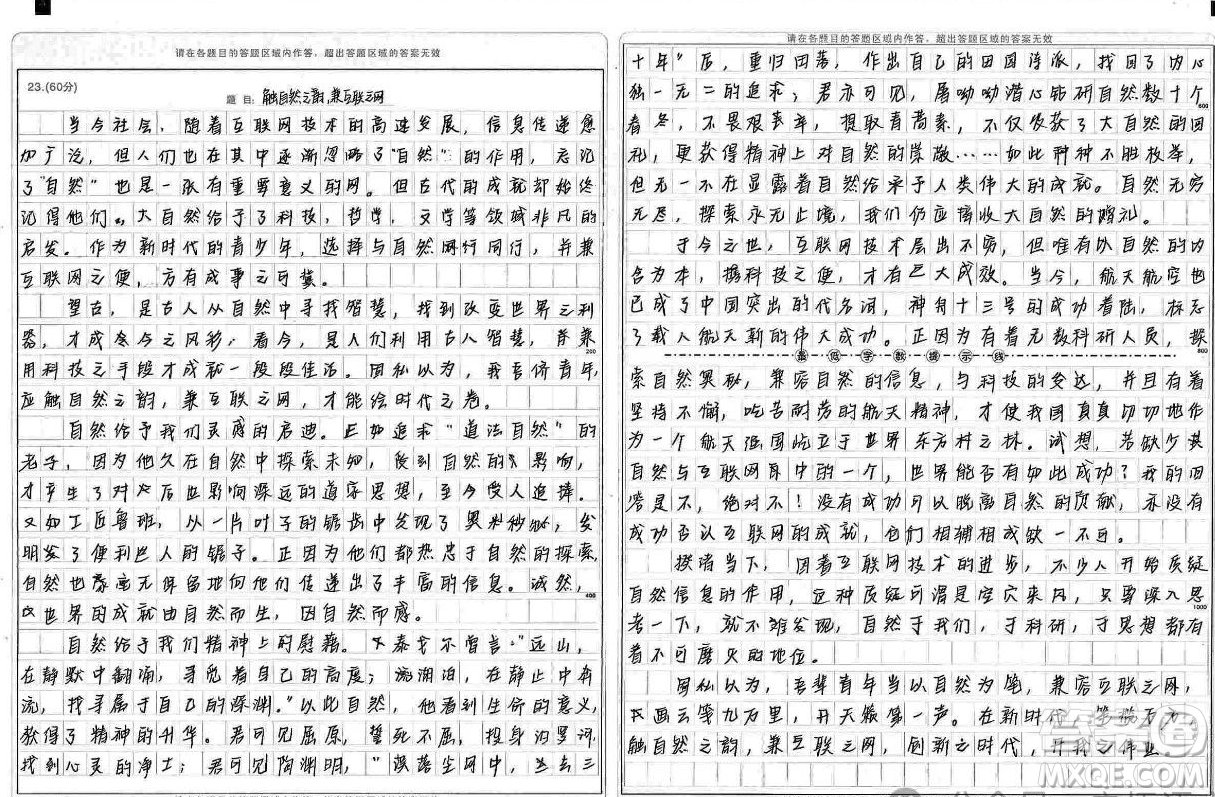 请在各题目的答题区域内作答，超出答题区域的答案无效
23.(60分)
题 目: 触自然之韵,兼互联之网
当今社会，随着互联网技术的高速发展，信息传递愈
加广泛，但人们也在其中逐渐忽略了"自然"的作用，忘记
了"自然"也是一张有重要意义的网。但古代的成就都始终
记得他们。大自然给予了科技，哲学，文学等领域非凡的
启发。作为新时代的青少年，选择与自然同行，并兼
互联网之便，方有成事之可冀。
望古，是古人从自然中寻找智慧，找到改变世界之利
器，才成念今之风彩；看今，是人们利用古人智慧，并兼
200
用科技之手段才成就一段段佳话。因私以为，我吾侪青年，
应触自然之韵，兼互联之网，才能绘时代之卷。
自然给予我们灵感的启迪。正如追求"道法自然"的
老子，因为他久在自然中探索未知，受到自然的影响，
才产生了对后世影响深远的道家思想，至今受人追捧。
又如工匠鲁班，以一片叶子的锯齿中发现了奥秘，发
明了便利世人的锯子。正因为他们都热忠于自然的探索，
自然也毫无保留地向他们传递出了丰富的信息。诚然，
400
世界的成就由自然而生，因自然而感。
自然给予我们精神上的慰藉。泰戈尔曾言："远山，
在静默中翻涌，寻觅着自己的高度；流湖泊，在静止中奔
流，找寻属于自己的深渊。"以此自然，他看到生命的意义，
获得了精神的升华。君可见屈原，誓死不屈，投身汨罗河，
找到心灵的净土；君可见陶渊明，"误落尘网中，一去三
请在各题目的答题区域内作答，超出答题区域的答案无效
十年"后，重归田园，作出自己的田园诗派，找回了内心
独一无二的追求；君亦可见，屠呦呦潜心钻研自然数十个
600
春冬，不畏艰老年，提取青蒿素，不仅收获了大自然的回
礼，更获得精神上对自然的崇敬……如此种种不胜枚举，
但无一不在显露着自然给予人类伟大的成就。自然无穷
无尽，探索永无止境，我们仍应接收大自然的赠礼。
于今之世，互联网技术层出不穷，但唯有以自然的内
含为本，携科技之便，才有巨大成效。当今，航天航空也
已成了中国突出的代名词，神舟十三号的成功着陆，标志
了载人航天新的伟大成功。正因为有着无数科研人员，探
800
最低字数提示线
索自然奥秘，兼容自然的信息，与科技的发达，并且有着
坚持不懈，吃苦耐劳的航天精神，才使我国真真切切地作
为一个航天强国屹立于世界东方村之林。试想，若缺少其
自然与互联网其中的一个，世界能否有如此成功？我的回
答是不，绝对不！没有成功可以脱离自然的贡献，亦没有
成功否认互联网的成就，它们相辅相成缺一不可。
揆诸当下，因着互联网技术的进步，不少人开始质疑
自然信息的作用，这种质疑可谓是空穴来风，只要深入思
1000
考一下，就不难发现，自然于我们，于科研，于思想都有
着不可磨灭的地位。
因私以为，吾辈青年当以自然为笔，兼容互联之网，
画云笺九万里，开天籁第一声。在新时代
触自然之韵，兼互联之网，创新之时代，开我之伟业。
答案圈
MXQE.COM
公众号